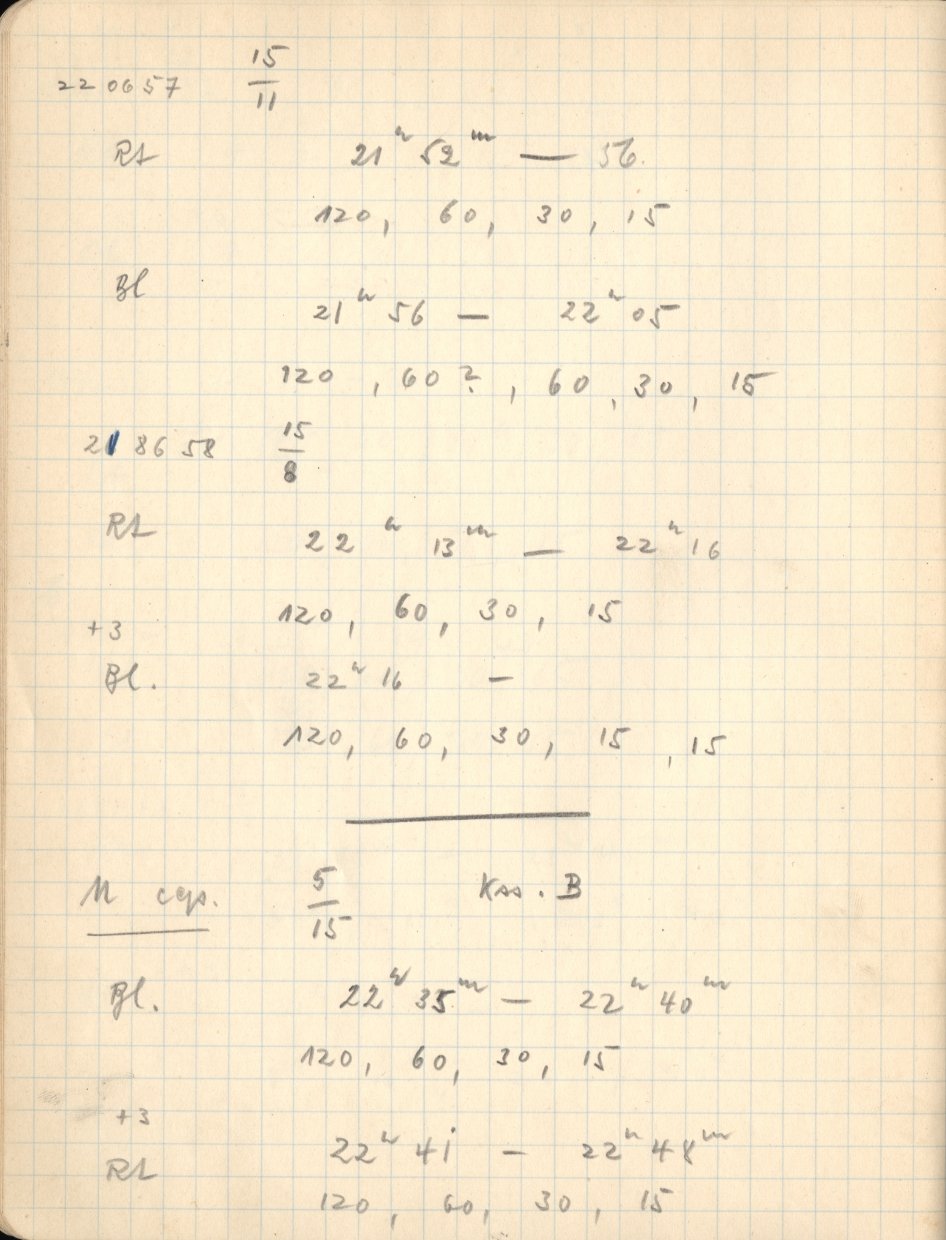 220657 15/11
Rt 21ʰ 52ᵐ — 56.
120, 60, 30, 15
Bl
21ʰ 56 — 22ʰ 05
120, 60?, 60, 30, 15
218658 15/8
Rt 22ʰ 13ᵐ — 22ʰ 16
120, 60, 30, 15
+3
Bl. 22ʰ 16 —
120, 60, 30, 15, 15
5/15 Kass. B
Bl. 22ʰ 35ᵐ — 22ʰ 40ᵐ
120, 60, 30, 15
+3
Rt 22ʰ 41 — 22ʰ 48ᵐ
120, 60, 30, 15